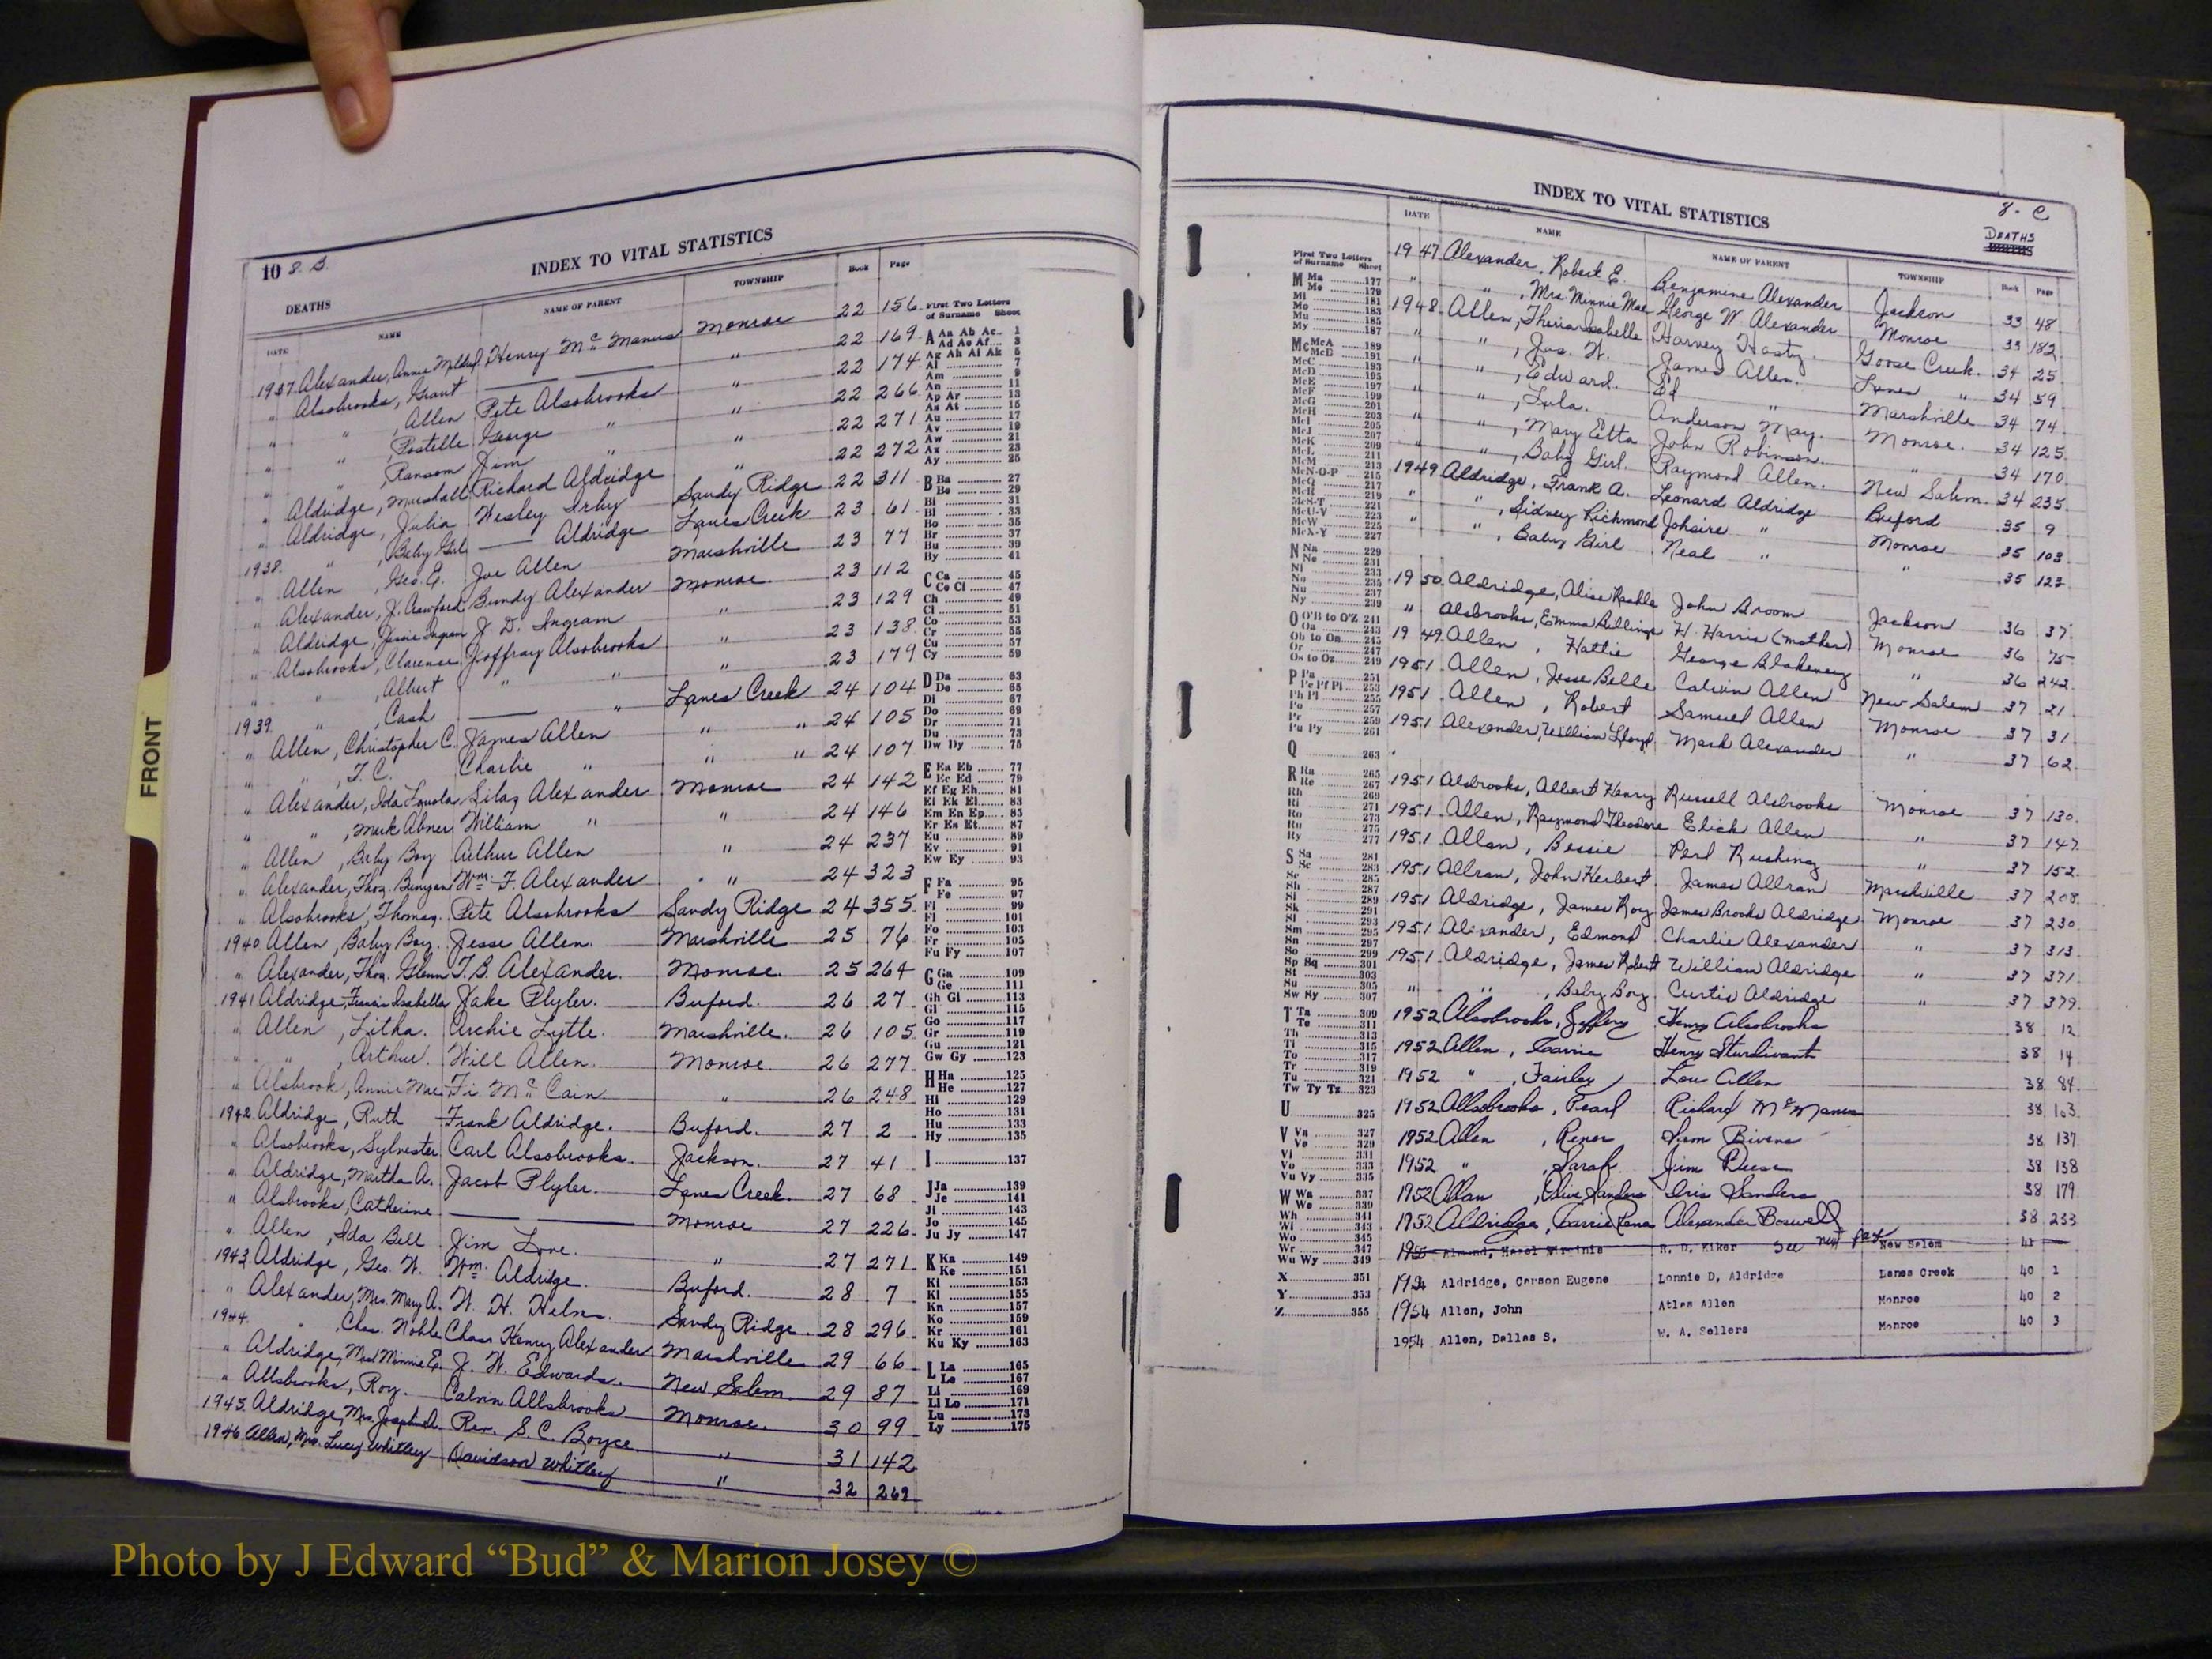 10 8.B.
INDEX TO VITAL STATISTICS
DEATHS
DATE NAME NAME OF PARENT TOWNSHIP Book Page
1937 Alexander, Annie Mildred Henry McManus Monroe 22 156
" Alsobrooks, Grant " 22 169
" " , Allen Pete Alsobrooks " 22 174
" " , Postelle George " " 22 266
" " , Ransom Jim " " 22 271
" Aldridge, Marshall Richard Aldridge " 22 272
" Aldridge, Julia Wesley Irby Sandy Ridge 22 311
1938 " , Baby Girl Aldridge Lanes Creek 23 61
" Allen, Geo. E. Joe Allen Marshville 23 77
" Alexander, J. Crawford Bundy Alexander Monroe 23 112
" Aldridge, Jessie Ingram J. D. Ingram 23 129
" Alsobrooks, Clarence Joffray Alsobrooks " 23 138
" " , Albert " " " 23 179
1939 " , Cash " Lanes Creek 24 104
" Allen, Christopher C. James Allen " " 24 105
" " , T. C. Charlie " " " 24 107
" Alexander, Ida Louola Silas Alexander Monroe 24 142
" " , Mark Abner William " " 24 146
" Allen, Baby Boy Arthur Allen " 24 237
" Alexander, Thos. Bunyan Wm. F. Alexander " 24 323
" Alsobrooks, Thomas. Pete Alsobrooks Sandy Ridge 24 355
1940 Allen, Baby Boy. Jesse Allen. Marshville 25 76
" Alexander, Thos. Glenn T. B. Alexander. Monroe. 25 264
1941 Aldridge, Francis Isabella Jake Plyler. Buford. 26 27
" Allen, Litha. Archie Lyttle. Marshville. 26 105
" " , Arthur. Will Allen. Monroe. 26 277
" Alsbrook, Annie Mae Fi McCain " 26 248
1942 Aldridge, Ruth Frank Aldridge. Buford. 27 2
" Alsobrooks, Sylvester Carl Alsobrooks. Jackson. 27 41
" Aldridge, Martha A. Jacob Plyler. Lanes Creek. 27 68
" Alsbrooks, Catherine Monroe 27 226
" Allen, Ida Bell Jim Love. " 27 271
1943 Aldridge, Geo. W. Wm. Aldridge. Buford. 28 7
" Alexander, Mrs. Mary A. W. H. Helms. Sandy Ridge. 28 296
1944 " , Chas. Noble Chas Henry Alexander Marshville 29 66
" Aldridge, Mrs. Minnie E. J. W. Edwards. New Salem. 29 87
" Allsbrooks, Roy. Calvin Allsbrooks Monroe. 30 99
1945 Aldridge, Mrs. Joseph A. Rev. S. C. Boyce " 31 142
1946 Allen, Mrs. Lucy Whitley Davidson Whitley " 32 269
First Two Letters of Surname Sheet
A Aa Ab Ac.. 1
Ad Ae Af... 3
Ag Ah Ai Ak 5
Al 7
Am 9
An 11
Ap Ar 13
As At 15
Au 17
Av 19
Aw 21
Ax 23
Ay 25
B Ba 27
Be 29
Bi 31
Bl 33
Bo 35
Br 37
Bu 39
By 41
C Ca 45
Ce Ci 47
Ch 49
Cl 51
Co 53
Cr 55
Cu 57
Cy 59
D Da 63
De 65
Di 67
Do 69
Dr 71
Du 73
Dw Dy 75
E Ea Eb 77
Ec Ed 79
Ef Eg Eh 81
Ei Ek El 83
Em En Ep 85
Er Es Et 87
Eu 89
Ev 91
Ew Ey 93
F Fa 95
Fe 97
Fi 99
Fl 101
Fo 103
Fr 105
Fu Fy 107
G Ga 109
Ge 111
Gh Gi 113
Gl 115
Go 117
Gr 119
Gu 121
Gw Gy 123
H Ha 125
He 127
Hi 129
Ho 131
Hu 133
Hy 135
I 137
J Ja 139
Je 141
Ji 143
Jo 145
Ju Jy 147
K Ka 149
Ke 151
Ki 153
Kl 155
Kn 157
Ko 159
Kr 161
Ku Ky 163
L La 165
Le 167
Li 169
Ll Lo 171
Lu 173
Ly 175
FRONT
INDEX TO VITAL STATISTICS
8-C
DEATHS
BIRTHS
DATE NAME NAME OF PARENT TOWNSHIP Book Page
1947 Alexander, Robert E. Benjamine Alexander Jackson 33 48
" " , Mrs Minnie Mae George W. Alexander Monroe 33 182
1948 Allen, Theria Isabelle Harvey Hasty. Goose Creek. 34 25
" " , Jas. W. James Allen. Lanes " 34 59
" " , Edward. Ed " Marshville 34 74
" " , Lula. Anderson May. Monroe. 34 125
" " , Mary Etta John Robinson. " 34 170
" " , Baby Girl. Raymond Allen. New Salem. 34 235
1949 Aldridge, Frank A. Leonard Aldridge Buford 35 9
" " , Sidney Richmond Johsire " Monroe 35 103
" " , Baby Girl Neal " " 35 123
1950 Aldridge, Alice John Broom Jackson 36 37
" Alsbrooks, Emma Billings H. Harris (mother) Monroe 36 75
1949 Allen, Hattie George Blakeney " 36 242
1951 Allen, Jesse Belle Calvin Allen New Salem 37 21
1951 Allen, Robert Samuel Allen Monroe 37 31
1951 Alexander, William Lloyd Mark Alexander " 37 62
1951 Alsbrooks, Albert Henry Russell Alsbrooks Monroe 37 130
1951 Allen, Raymond Theodore Elick Allen " 37 147
1951 Allan, Bessie Perl Rushing " 37 152
1951 Allran, John Herbert. James Allran Marshville 37 208
1951 Aldridge, James Roy James Brooks Aldridge Monroe 37 230
1951 Alexander, Edmond Charlie Alexander " 37 313
1951 Aldridge, James Robert William Aldridge " 37 371
" " , Baby Boy Curtis Aldridge " 37 379
1952 Alsobrooks, Jeffery Henry Alsobrooks 38 12
1952 Allen, Carrie Henry Sturdivant 38 14
1952 " , Fairley Lou Allen 38 84
1952 Allsobrooks, Pearl Richard McManus 38 103
1952 Allen, Rener Sam Bivens 38 137
1952 " , Sarah Jim Deese 38 138
1952 Allan, Olive Sanders Iris Sanders 38 179
1952 Aldridge, Carrie Lena Alexander Boswell 38 233
Almond, Hazel Virginia R. D. Eiker See next page New Salem 41
1954 Aldridge, Carson Eugene Lonnie D. Aldridge Lanes Creek 40 1
1954 Allen, John Atlas Allen Monroe 40 2
1954 Allen, Dallas S. W. A. Sellers Monroe 40 3
First Two Letters of Surname Sheet
M Ma 177
Me 179
Mi 181
Mo 183
Mu 185
My 187
Mc McA 189
McB 191
McC 193
McD 195
McE 197
McF 199
McG 201
McH 203
McI 205
McJ 207
McK 209
McL 211
McM 213
McN-O-P 215
McQ 217
McR 219
McS-T 221
McU-V 223
McW 225
McX-Y 227
N Na 229
Ne 231
Ni 233
No 235
Nu 237
Ny 239
O O'B to O'Z 241
Oa 243
Ob to On 245
Or 247
Os to Oz 249
P Pa 251
Pe Pf Pi 253
Ph Pl 255
Po 257
Pr 259
Pu Py 261
Q 263
R Ra 265
Re 267
Rh 269
Ri 271
Ro 273
Ru 275
Ry 277
S Sa 281
Sc 283
Se 285
Sh 287
Si 289
Sk 291
Sl 293
Sm 295
Sn 297
So 299
Sp Sq 301
St 303
Su 305
Sw Sy 307
T Ta 309
Te 311
Th 313
Ti 315
To 317
Tr 319
Tu 321
Tw Ty Tz 323
U 325
V Va 327
Ve 329
Vi 331
Vo 333
Vu Vy 335
W Wa 337
We 339
Wh 341
Wi 343
Wo 345
Wr 347
Wu Wy 349
X 351
Y 353
Z 355
Photo by J Edward “Bud” & Marion Josey ©